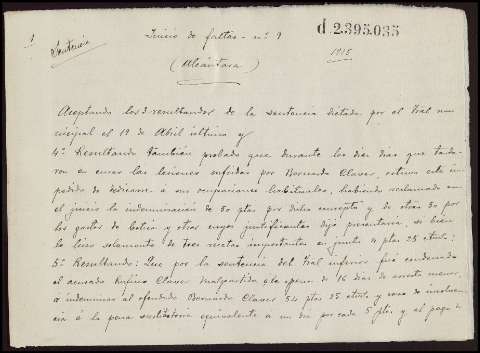 Sentencia
Juicio de faltas - nº 9
d 2.395.035
1915
(Alcántara)
Aceptando los 3 resultandos de la sentencia dictada por el Tral mu
nicipal el 19 de Abril último y
4º Resultando también probado que durante los diez días que tarda-
ron en curar las lesiones inferidas por Bernardo Claver, estuvo este im-
pedido de dedicarse a sus ocupaciones habituales, habiendo reclamado en
el juicio la indemnización de 50 ptas por dicho concepto y de otras 50 por
los gastos de botica y otros cuyos justificantes dijo presentaría, si bien
lo hizo solamente de tres recetas importantes en junto 4 ptas 25 cts:
5º Resultando: Que por la sentencia del Tral inferior fué condenado
el acusado Rufino Claver Malpartida a la pena de 16 días de arresto menor,
á indemnizar al ofendido Bernardo Claver 54 ptas 25 cts y caso de insolven-
cia á la para sustitutoria equivalente a un día por cada 5 ptas, y al pago de